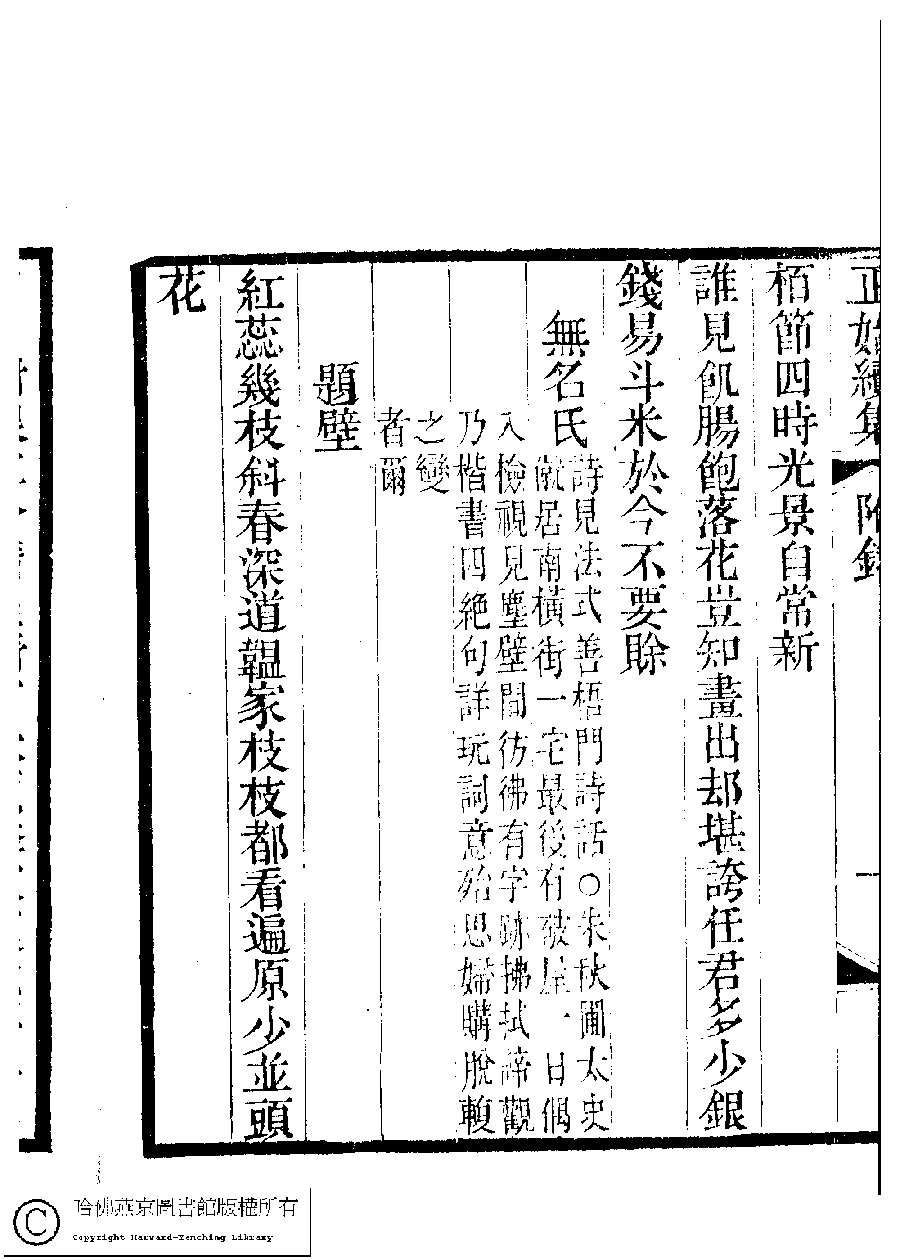 正始續集 附錄 一
栢節四時光景自常新
誰見飢腸飽落花豈知畫出却堪誇任君多少銀
錢易斗米於今不要賒
無名氏
詩見法式善梧門詩話○朱秋圃太史
僦居南橫街一宅最後有破屋一日偶
入檢視見塵壁間彷彿有字跡拂拭諦觀
乃楷書四絕句詳玩詞意殆思婦購脫輹
之變
者爾
題壁
紅蕊幾枝斜春深道韞家枝枝都看遍原少並頭
花
哈佛燕京圖書館版權所有
Copyright Harvard-Yenching Library